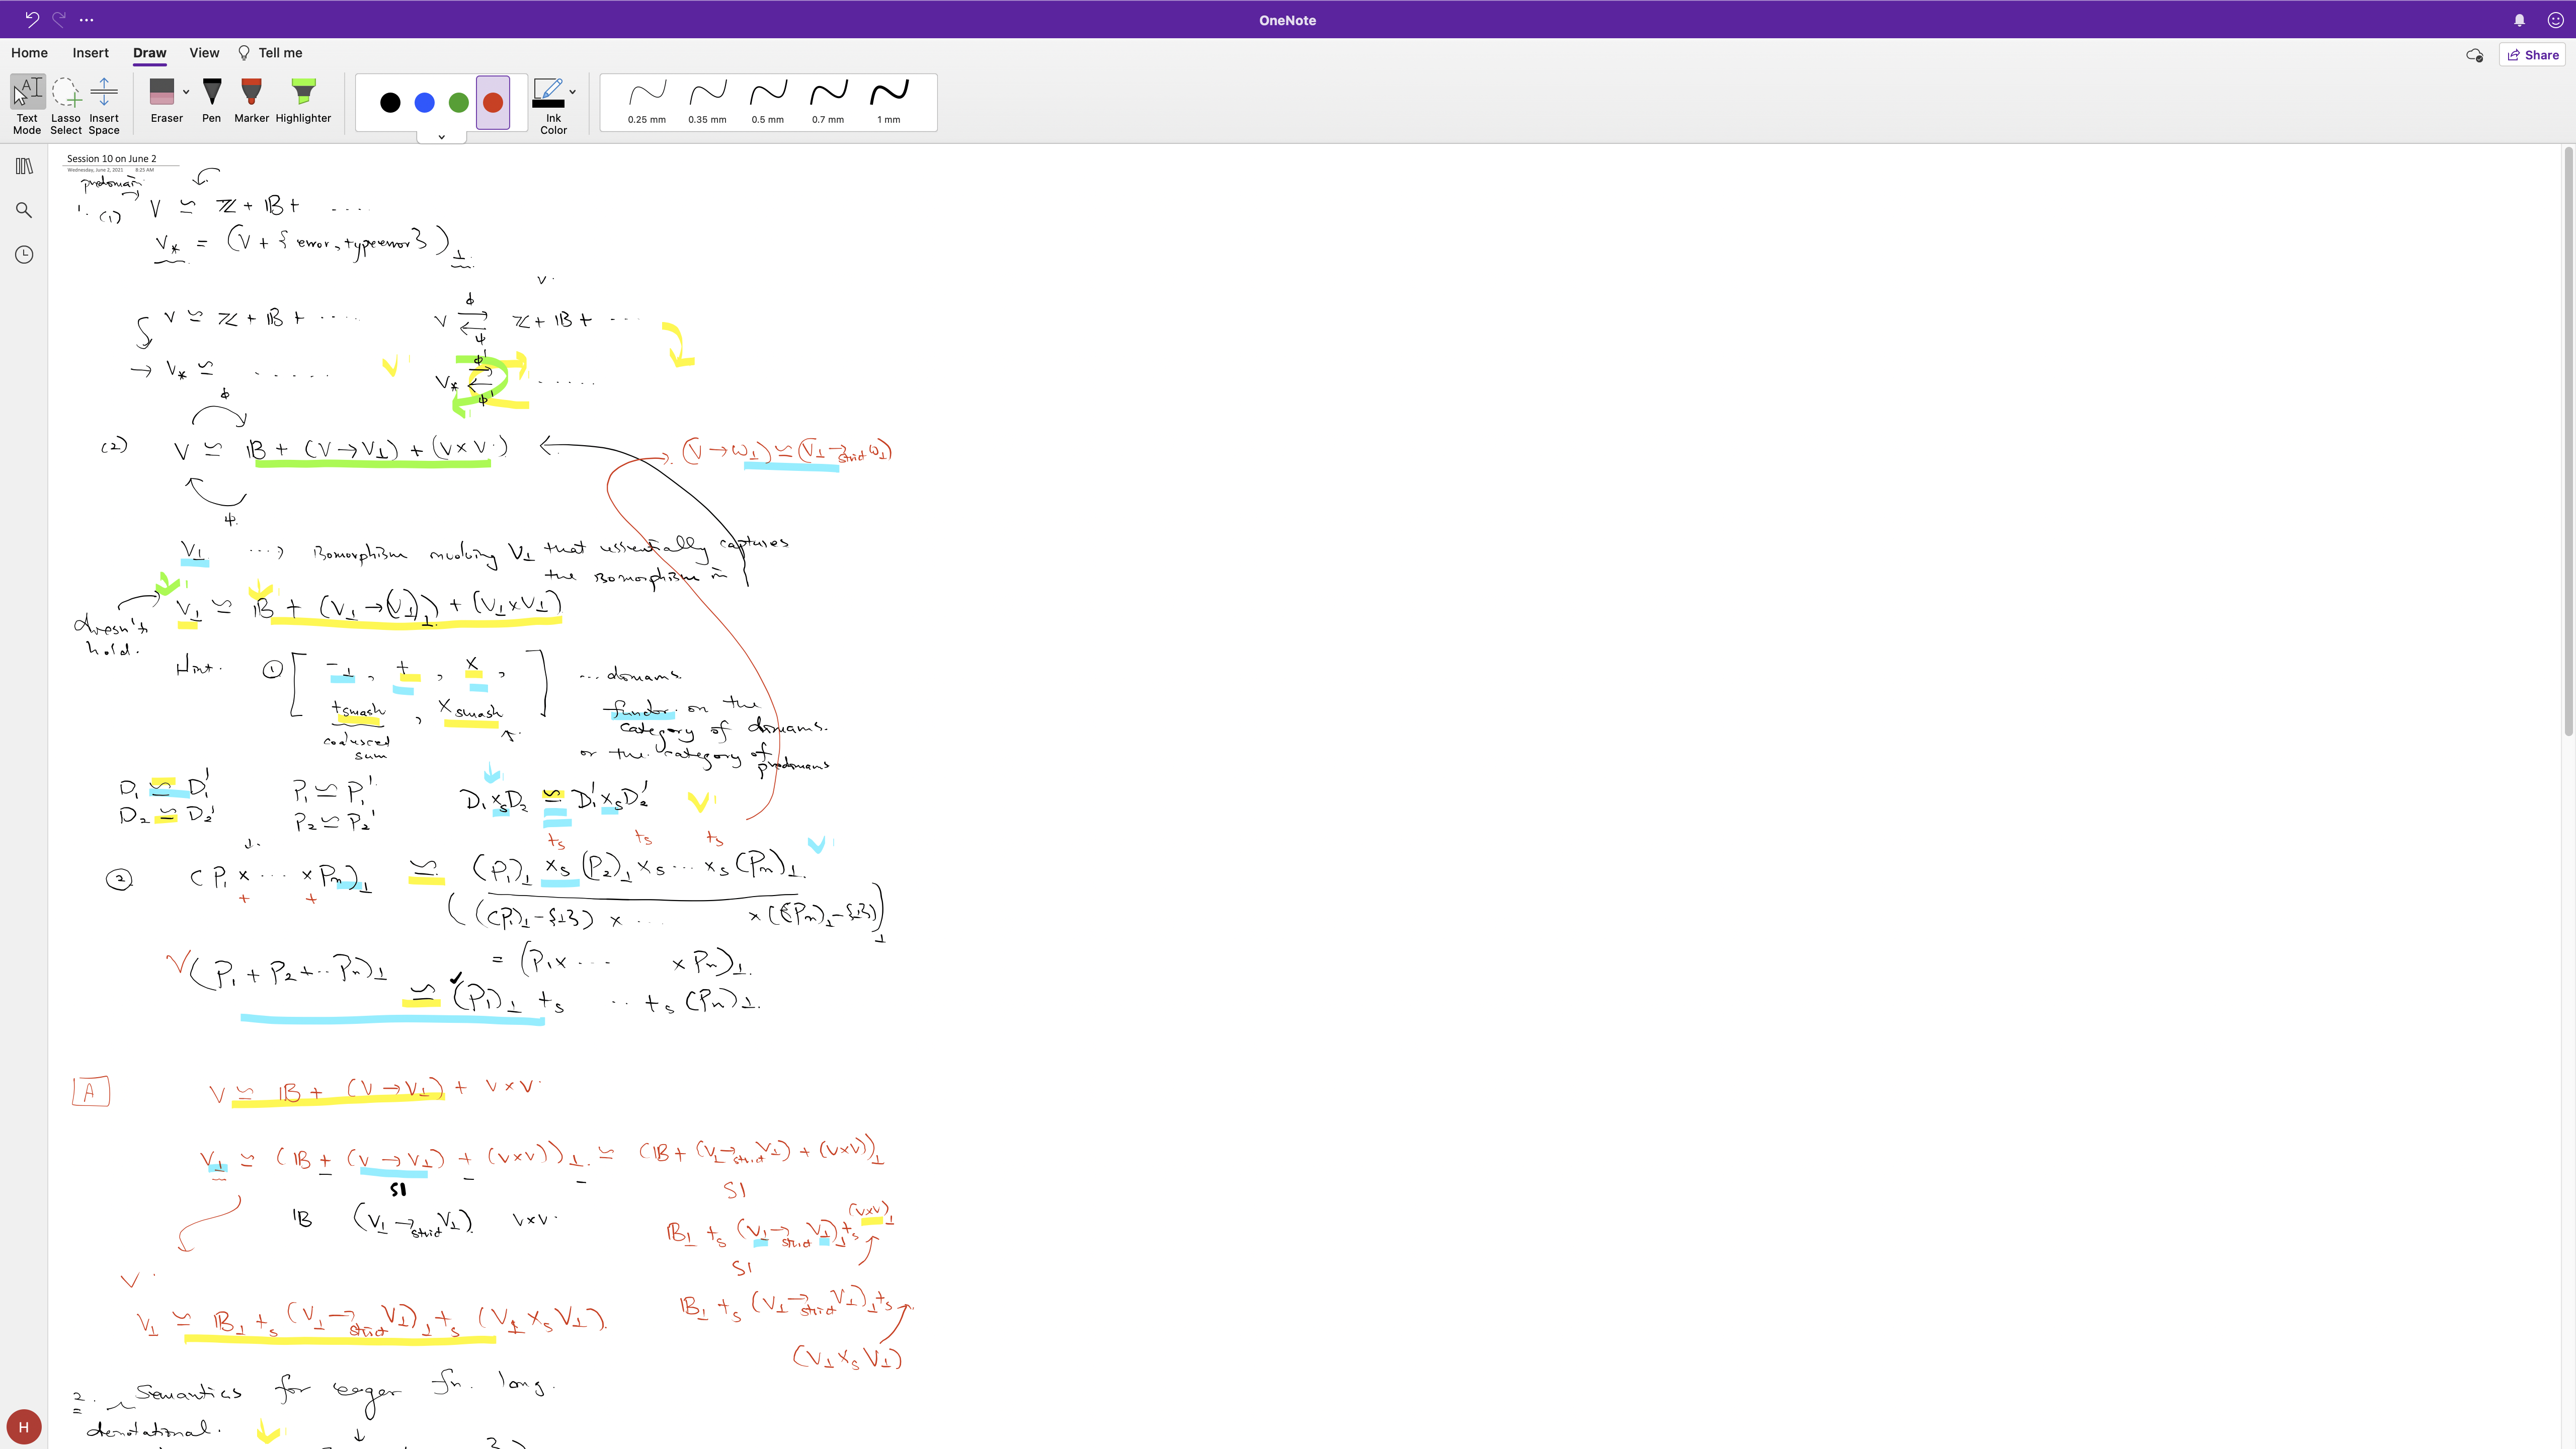 OneNote
Home Insert Draw View Tell me
Share
Text Mode
Lasso Select
Insert Space
Eraser
Pen
Marker
Highlighter
Ink Color
0.25 mm 0.35 mm 0.5 mm 0.7 mm 1 mm
Session 10 on June 2
Wednesday, June 2, 2021 8:25 AM
predomain
1. (1) V ≃ ℤ + 𝔹 + ....
V* = (V + {error, typeerror})⊥
V ≃ ℤ + 𝔹 + ....
ϕ
V ⇄ ℤ + 𝔹 + ...
ψ
→ V* ≃ ......
ϕ'
V* ⇄ ......
ϕ'
ϕ
(2) V ≃ 𝔹 + (V → V⊥) + (V × V)
(V → W⊥) ≃ (V⊥ →strict W⊥)
ψ
V⊥ ...> isomorphism involving V⊥ that essentially captures
the isomorphism in
V⊥ ≃ 𝔹 + (V⊥ → (V⊥)⊥) + (V⊥ × V⊥)
doesn't
hold.
Hint. ① [ -⊥ , + , × , ... domains.
+smash , ×smash ]
coalesced
sum
functor on the
category of domains.
or the category of
predomains
D₁ ≃ D₁' P₁ ≃ P₁' D₁ ×s D₂ ≃ D₁' ×s D₂'
D₂ ≃ D₂' P₂ ≃ P₂'
+s +s +s
② (P₁ × ... × Pn)⊥ ≃ (P₁)⊥ ×s (P₂)⊥ ×s ... ×s (Pn)⊥
+ +
(((P₁)⊥ - {⊥}) × ... × ((Pn)⊥ - {⊥}))⊥
= (P₁ × ... × Pn)⊥
(P₁ + P₂ + ... Pn)⊥
≃ (P₁)⊥ +s ... +s (Pn)⊥
A V ≃ 𝔹 + (V → V⊥) + V × V
V⊥ ≃ (𝔹 + (V → V⊥) + (V × V))⊥ ≃ (𝔹 + (V⊥ →strict V⊥) + (V × V))⊥
SI SI
𝔹 (V⊥ →strict V⊥) V × V
𝔹⊥ +s (V⊥ →strict V⊥)⊥ +s (V × V)⊥
SI
𝔹⊥ +s (V⊥ →strict V⊥)⊥ +s
(V⊥ ×s V⊥)
V⊥ ≃ 𝔹⊥ +s (V⊥ →strict V⊥)⊥ +s (V⊥ ×s V⊥)
2. Semantics for eager fn. lang.
denotational.
H